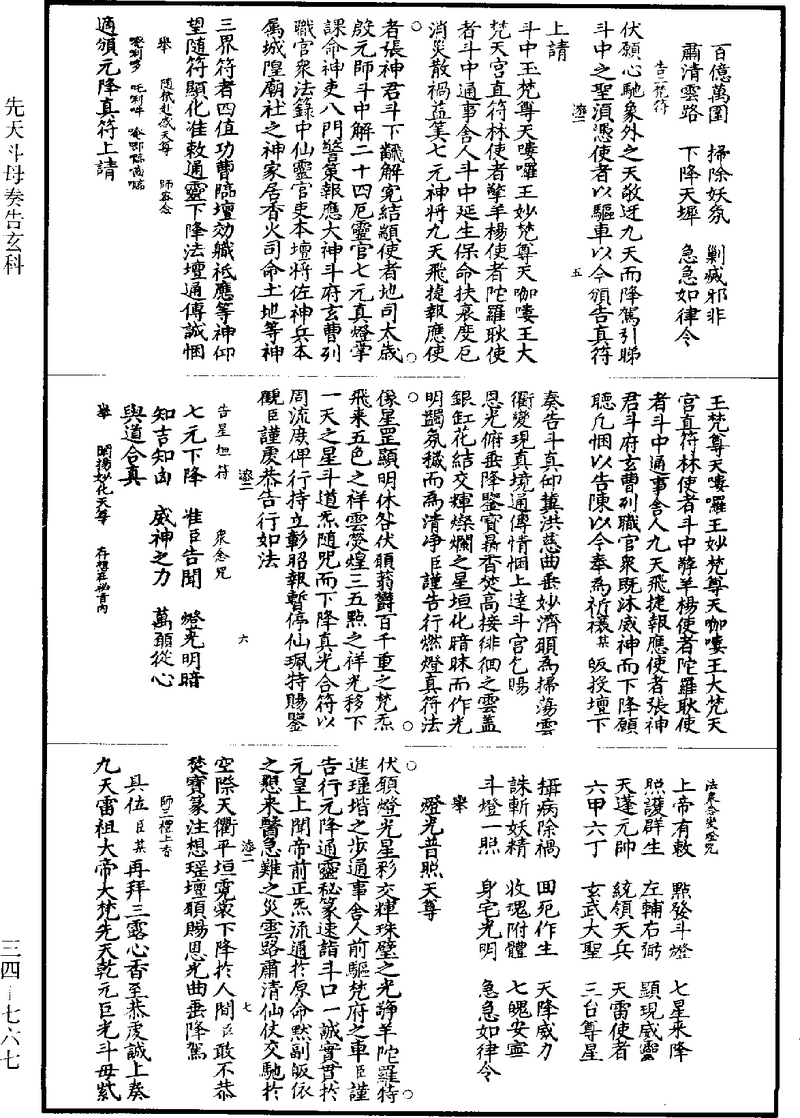 百億萬圍　掃除妖氛　剿滅邪非
肅清雲路　下降天墀　急急如律令
告三梵符
伏願心馳象外之天敬迓九天而降駕引睇
斗中之聖須憑使者以驅車以今頒告真符
上請
斗中玉梵尊天嘍囉王妙梵尊天咖嘍王大
梵天宮直符林使者擎羊楊使者陀羅耿使
者斗中通事舍人斗中延生保命扶衰度厄
消災散禍益筭七元神將九天飛捷報應使
者張神君斗下䶥解冤結顯使者地司太歲
殷元師斗中解二十四厄靈官七元真燈掌
課命神吏八門警策報應大神斗府玄曹列
職官衆法籙中仙靈官吏本壇將佐神兵本
属城隍廟社之神家居香火司命土地等神
三界符者四值功曹臨壇効職祗應等神仰
望随符顯化准敕通靈下降法壇通傳誠悃
舉　随機赴感天尊　師密念
適頒元降真符上請
王梵尊天嘍囉王妙梵尊天咖嘍王大梵天
宮直符林使者斗中擎羊楊使者陀羅耿使
者斗中通事舍人九天飛捷報應使者張神
君斗府玄曹列職官衆既沐威神而下降願
聽凡悃以告陳以今奉為祈禳某皈投壇下
奏告斗真仰冀洪慈曲垂妙濟願為掃蕩雲
衢變現真境通傳情悃上達斗宮乞賜
恩光俯垂降鑒寶鼎香焚高接徘徊之雲蓋
銀缸花結交輝燦爛之星垣化暗昧而作光
明蠲氛穢而為清淨臣謹告行燃燈真符法
像星罡顯明休咎伏願蓊欝百千重之梵炁
飛来五色之祥雲熒煌三五點之祥光移下
一天之星斗道炁随咒而下降真光合符以
周流庶俾行持立彰昭報暫停仙珮特賜鑒
觀臣謹虔恭告行如法
告星垣符　衆念咒
七元下降　准臣告聞　燈光明暗
知吉知凶　威神之力　萬願從心
與道合真
舉　開揚妙化天尊　存想在祕旨内
法衆念變燈咒
上帝有敕　點發斗燈　七星来降
照護群生　左輔右弼　顯現威靈
天蓬元帥　統領天兵　天雷使者
六甲六丁　玄武大聖　三台尊星
攝病除禍　囬死作生　天降威力
誅斬妖精　收魂附體　七魄安寧
斗燈一照　身宅光明　急急如律令
舉
燈光普照天尊
伏願燈光星彩交輝珠璧之光擎羊陀羅待
進瑶堦之步通事舍人前驅梵府之車臣謹
告行元降通靈秘篆速詣斗口一誠實貫於
元皇上聞帝前正炁流通於原命黙副皈依
之懇来醫急難之災雲路肅清仙仗交馳於
空際天衢平垣霓裳下降於人間臣敢不恭
焚寶篆注想瑶壇願賜恩光曲垂降駕
師三禮上香
具位臣某再拜三露心香至恭虔誠上奏
九天雷祖大帝大梵先天乾元巨光斗母紫
先天斗母奏告玄科
三四－七六七